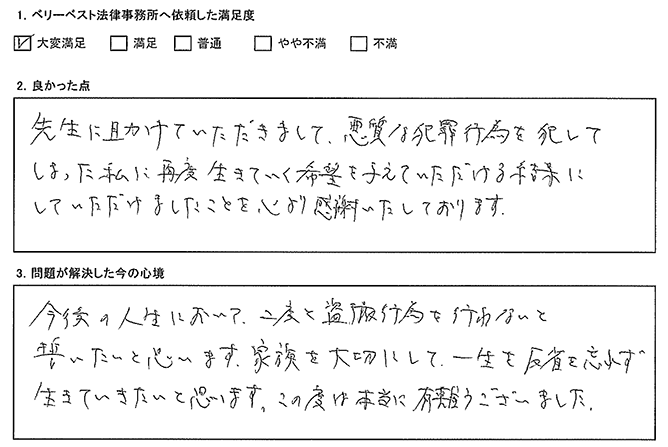 1. ベリーベスト法律事務所へ依頼した満足度
大変満足 満足 普通 やや不満 不満
2. 良かった点
先生に助けていただきまして、悪質な犯罪行為を犯して
しまった私に再度生きていく希望を与えていただける結果に
していただけましたことを心より感謝いたしております。
3. 問題が解決した今の心境
今後の人生において、二度と盗撮行為を行わないと
誓いたいと思います。家族を大切にして、一生を反省を忘れず
生きていきたいと思います。この度は本当に有難うございました。